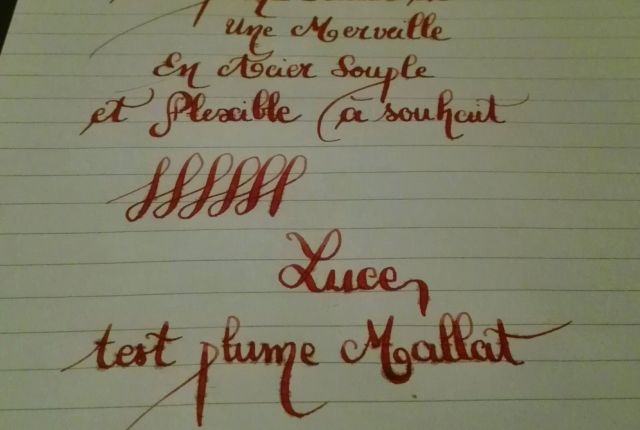 Une Merveille
En Acier Souple
et Flexible à souhait
Luce
test plume Mallat